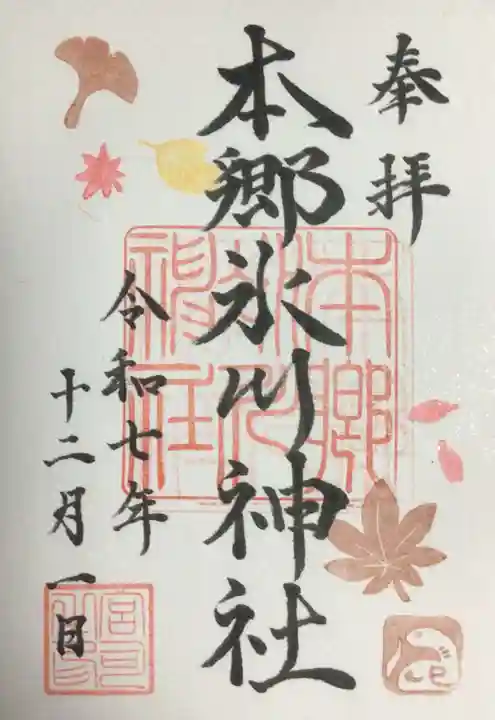 奉拝
本郷氷川神社
令和七年
十二月一日
本郷氷川神社
巳